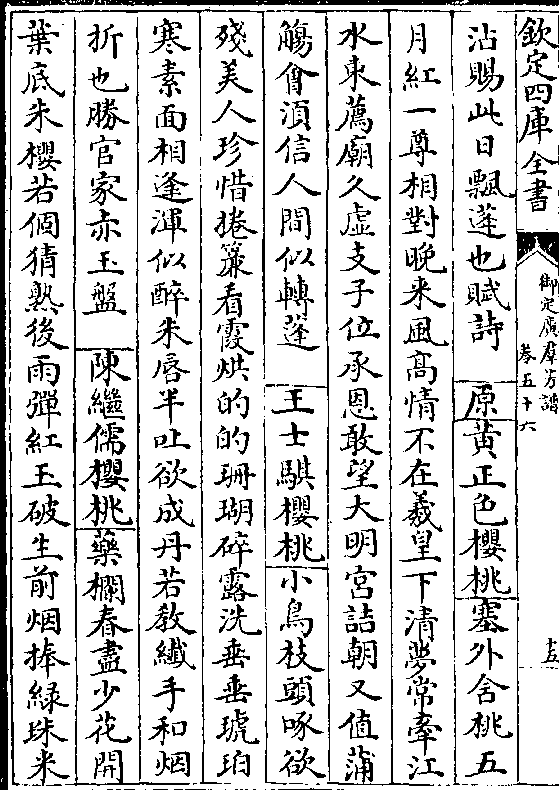 欽定四庫全書
御定廣羣芳譜
卷五十六
十五
沾賜此日飄蓬也賦詩　原黃正色櫻桃塞外含桃五
月紅一尊相對晚来風高情不在羲皇下清夢常牽江
水東薦廟久虛支子位承恩敢望大明宫詰朝又值蒲
觴會須信人間似轉蓬　王士騏櫻桃小鳥枝頭啄欲
殘美人珍惜捲簾看霞烘的的珊瑚碎露洗垂垂琥珀
寒素面相逢渾似醉朱唇半吐欲成丹若教纖手和烟
折也勝官家赤玉盤　陳繼儒櫻桃藥欄春盡少花開
葉底朱櫻若個猜熟後雨彈紅玉破生前烟捧緑珠来